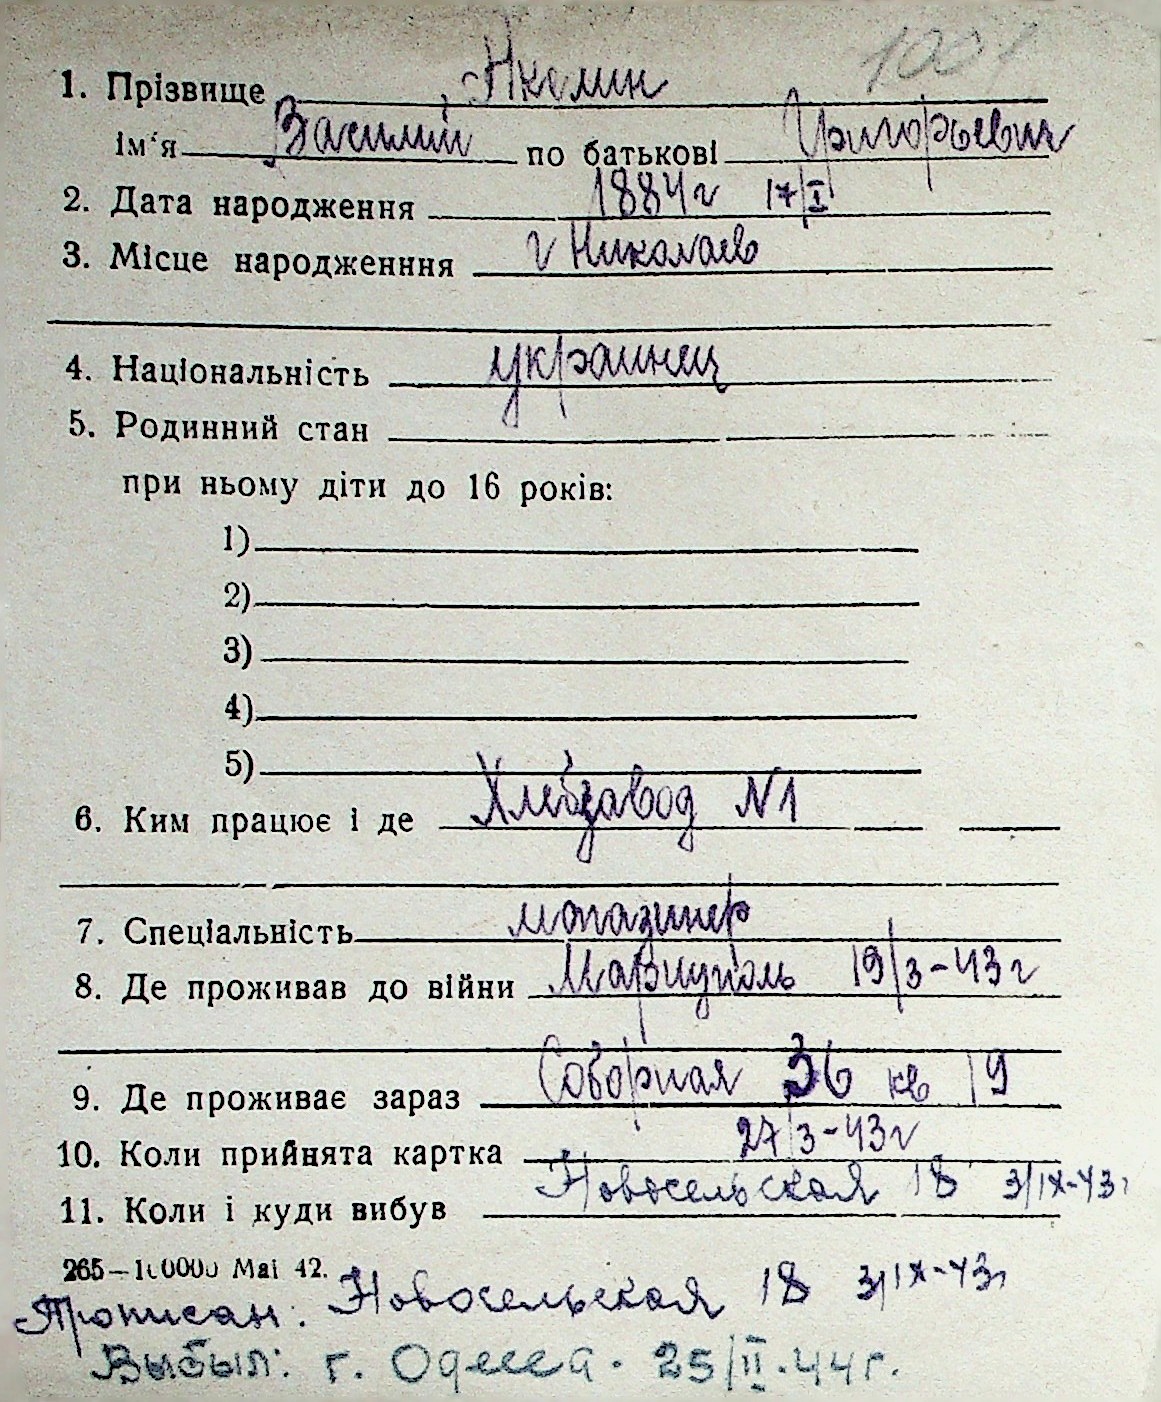 1001
1. Прізвище Якомин
ім'я Василий по батькові Григорьевич
2. Дата народження 1884 г 17/I
3. Місце народженння г Николаев
4. Національність украинец
5. Родинний стан
при ньому діти до 16 років:
1)
2)
3)
4)
5)
6. Ким працює і де Хлебзавод N1
7. Спеціальність магазинер
8. Де проживав до війни Мариуполь 19/3-43 г
9. Де проживає зараз Соборная 36 кв 19
10. Коли прийнята картка 27/3-43 г
11. Коли і куди вибув Новосельская 18 3/IX-43 г
265—100000 Mai 42.
Прописан: Новосельская 18 3/IX-43 г
Выбыл: г. Одесса. 25/II.44 г.